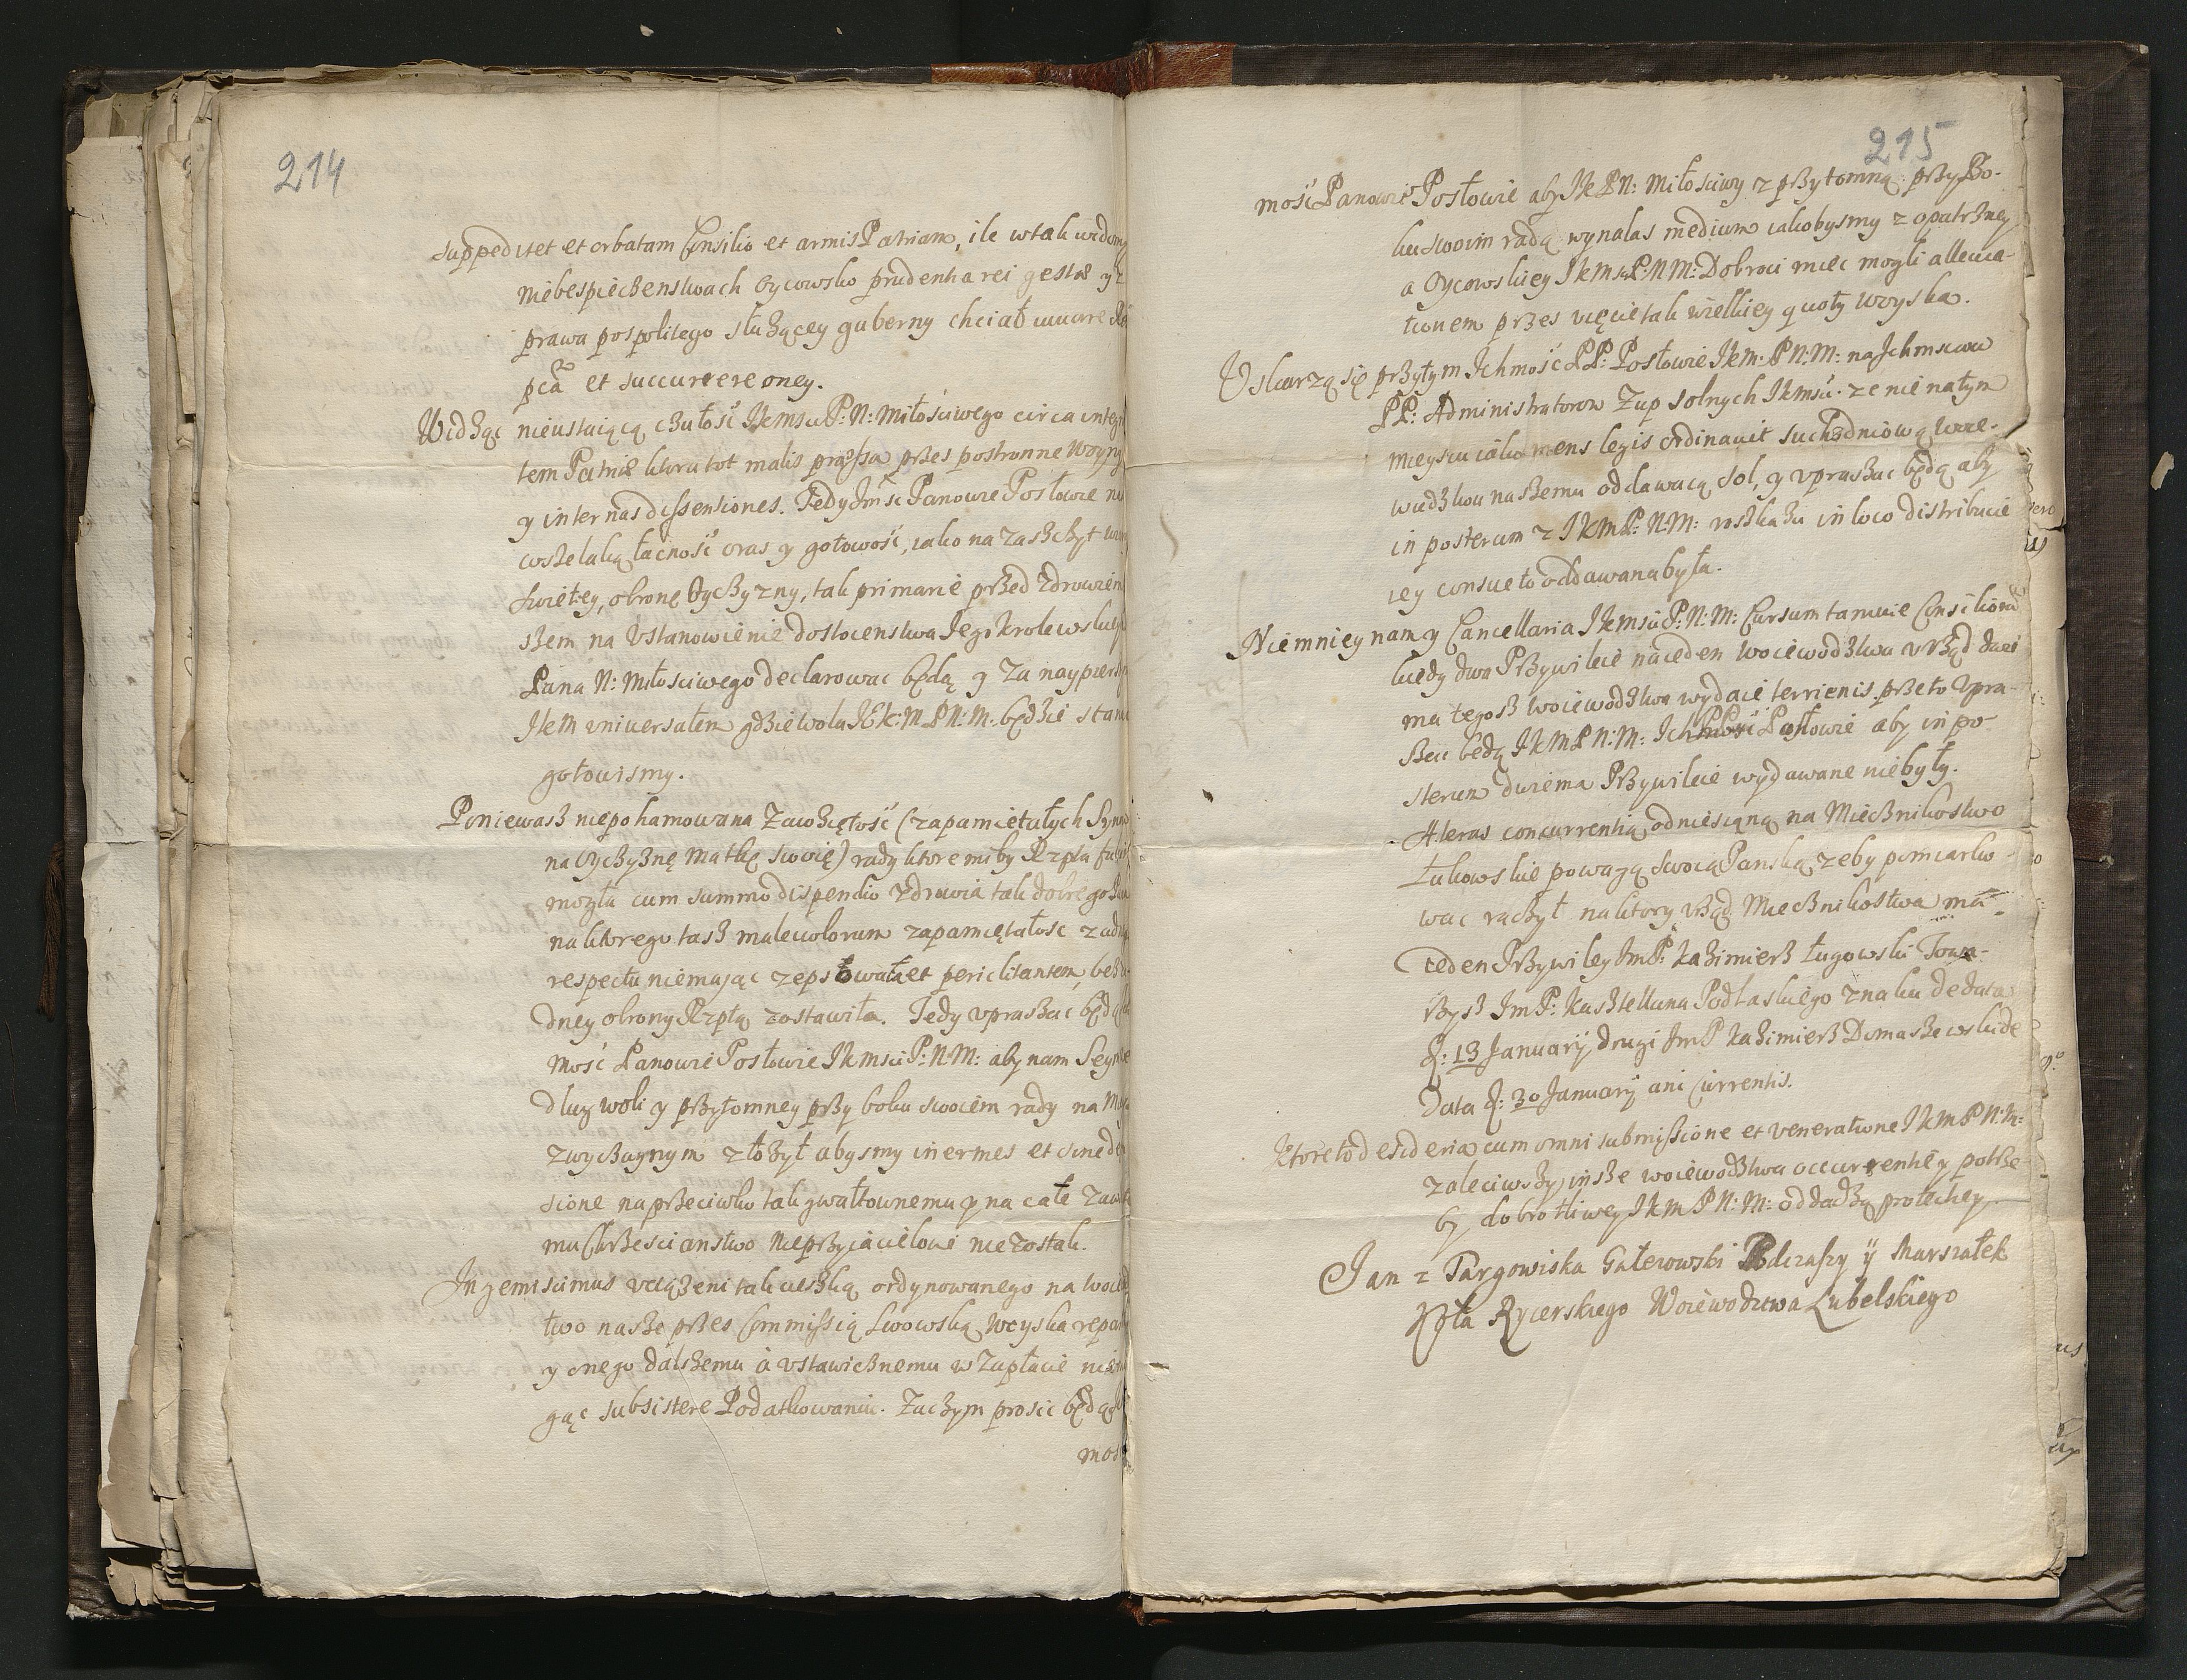 214
suppeditet et orbatam Consilio et armis Patriam, ile wtak widomy
niebespieczenstwach Oycowsko prudentia rei gestæ y z
prawa pospolitego służącey guberny chciał iuuare
pcã et succurrere oney.
Widząc nieustaiącą czułosć Ikmsci P: N: Miłościwego circa integri
tem Patriæ ktora tot malis præssa przes postronne Woyny
y internas dissensiones. Tedy Imsc Panowie Posłowie
wszelaką łacność oras y gotowość, iako na zaszczyt wiary
Swiętey, obronę Oyczyzny, tak primarie przed zdrowiem
szem na Vstanowienie dostoienstwa Jego krolewskiey
Pana N: Miłosciwego declarowac będą y za naypierszym
Ikm vniuersałem gdzie wola IEk: M P N: M: będzie stanąć
gotowismy.
Poniewasz niepohamowana Zawziętość (zapamietałych Synow
na Oyczyznę Matkę swoię) rady ktoremiby Rzpta
mogła cum summo dispendio zdrowia tak dobrego
na ktorego tasz maleuolorum zapamiętałosc zadnego
respectu niemaiąc zepsowała et periclitantem, beza
dney obrony Rzptą zostawiła. Tedy vpraszac będą
mosć Panowie Posłowie Ikmsci P: N M: aby nam Seym
dług woli y przytomney przy boku swoiem rady na
zwyczaynym złożył abysmy inermes et sine
sione naprzeciwko tak gwałtownemu y na całe
mu Chrzescianstwo Nieprzyiacielowi niezostali.
Ingemiscimus vciążeni tak cieszką ordynowanego na Woiew
two nasze przes Commissią Lwowską Woyska
y onego dalszemu a vstawicznemu w zapłacie
gąc subsistere Podatkowaniu. Zaczym prosic będą
mos
215
mosć Panowie Posłowie aby Ik P N: Miłosciwy z przytomną przy Bo-
ku swoim radą wynalas medium iakobysmy z opatrzney
a Oycowskiey Ikmsci P: N M: Dobroci miec mogli alleuia-
tionem przes vięcie tak wielkiey quoty woyska.
Vskarzą się przytym Ichmosć P P: Posłowie Ikm: P N: M: na Ichmsciow
P P: Administratorow Zup solnych Ikmsci: ze nie natym
mieyscu iako mens legis ordinauit Suchedniową Woie-
wudztwu naszemu oddawaią sol, y vpraszac będą aby
in posterum z Ikm P: N M: roskazu in loco distributiæ
iey consueto oddawana była.
Niemniey nam y Cancellaria Ikmsci P: N: M: Cursum tamuie Consiliorũ
kiedy dwa Przywileie na ieden woiewodztwa vrząd dwie
ma tegosz woiewodztwa wydaie terrienis. przeto Vpra-
szac będą Ikm P N: M: Ich P P: Posłowie aby in po-
sterum dwiema Przywileie wydawane niebyły.
A teras concurrentią odniesioną na Miecznikostwo
Łukowskie powagą swoią Panską zeby pomiarko-
wac raczył na ktory vrząd Miecznikostwa ma
ieden Przywiley Im P: Kazimierz Ługowski Towa-
rzysz Im P: Kasztellana Podlaskiego znaku de data
d: 13 Januarÿ drugi Im P Kazimierz Domaszewski de
data d: 30 Januarÿ ani Currentis.
Ktore to desideria cum omni submissione et veneratione Ikm P N: M:
zaleciwszy insze woiewodztwa occurrentie y potrze-
by dobrotliwey Ikm P N: M: oddadzą protectiey
Jan z Targowiska Gałezowski Podczaszy ÿ Marszałek
Koła Rycerskiego Woiewodztwa Lubelskiego